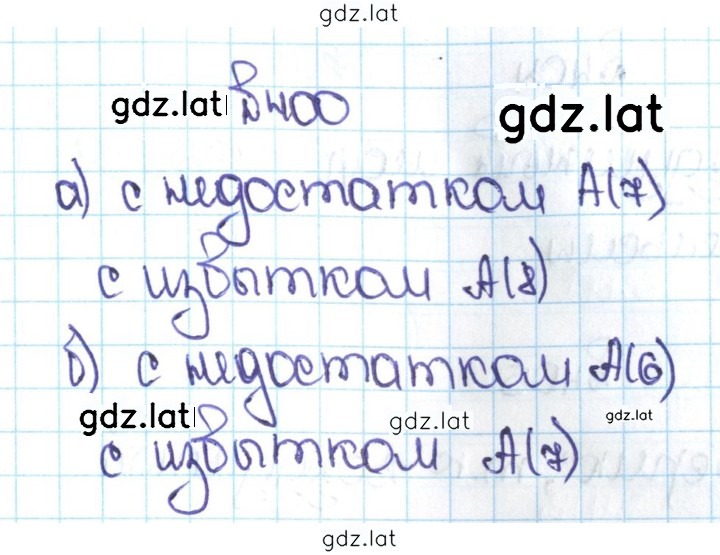 gdz.lat
gdz.lat в 400 gdz.lat
а) с недостатком А(7)
с избытком А(8)
б) с недостатком А(6)
gdz.lat gdz.lat gdz.lat
с избытком А(7)
gdz.lat